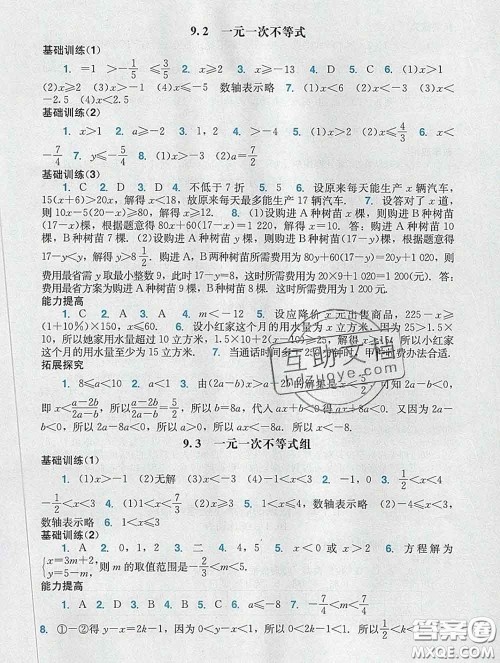 9.2 一元一次不等式
基础训练(1)
1. =1 >-1/5 ≤3/5 2. x≥2 3. x≥-13 4. D 5. C 6. (1)x>1
(2)x≥2 (3)x>-1 (4)x≤-5 数轴表示略 7. (1)x<6 (2)x<-3 (3)x<
-2.5 (4)x<2.5
基础训练(2)
1. x>1 2. a≥-2 3. 1,2 4. >-3 5. (1)x>-2 (2)x≤4/3 6. x<
-7/4 7. y≤-5/4 8. (1)x>-3 (2)a=7/2
基础训练(3)
1. C 2. D 3. D 4. 不低于7折 5. 5 6. 设原来每天能生产x辆汽车,
15(x+6)>20x,解得x<18,故原来每天最多能生产17辆汽车. 7. 设答对了x道,
则10x-5(20-x)≥80,解得x≥12. 8. (1)设购进A种树苗x棵,则购进B种树苗
(17-x)棵,根据题意得80x+60(17-x)=1 220,解得x=10. 答:购进A种树苗
10棵,B种树苗7棵. (2)设购进A种树苗y棵,则购进B种树苗(17-y)棵,根据题意得
17-y<y,解得y>8 1/2. 购进A、B两种树苗所需费用为80y+60(17-y)=20y+1 020,则
费用最省需y取最小整数9,此时17-y=8,这时所需费用为20×9+1 020=1 200(元). 答:
费用最省方案为购进9棵A种树苗,8棵B种树苗,这时所需费用为1 200元.
能力提高
1. B 2. B 3. x>3 4. m≤2 5. 设应降价x元出售商品,225-x≥
(1+10%)×150,x≤60. 6. 设小红家这个月的用水量为x立方米. 因为25>1.5×
10,所以她家用水量超过10立方米. 1.5×10+2(x-10)≥25,解得x≥15,所以小红家
这个月的用水量至少为15立方米. 7. 当通话时间多于250分钟时,甲种付费办法合适.
拓展探究
1. 8≤a<10 2. a<1 3. 由(2a-b)x>a-2b的解集是x<5/2,可知2a-b<0,
即x<(a-2b)/(2a-b),(a-2b)/(2a-b)=5/2,所以b=8a,代入ax+b<0得ax+8a<0,所以ax<-8a. 又因为2a
-b<0,所以2a-8a<0,所以a>0,所以x<-8.
9.3 一元一次不等式组
基础训练(1)
1. (1)x>-1 (2)无解 2. x>4 3. -1<x<2 4. B 5. C 6. -1,0 7. 1/2<x<4
-1/2<x<3 数轴表示略 8. 1<x<7/3 9. (1)-7/4<x<1 (2)-1/2<x<7/2,
数轴表示略 6. 1<x≤3
基础训练(2)
1. A 2. 0,1,2 3. 二 4. 4,5 5. x<0或x>2 6. 方程解为
{x=3m+2, y=5-m, 则m的取值范围是-2/3<m<5,数轴表示略
能力提高
1. A 2. A 3. D 4. B 5. C 6. a≤-8 7. -1/2<x<3
8. ①-②得y-x=2k-1,因为0<y-x<1,所以0<2k-1<1,所以1/2<k<